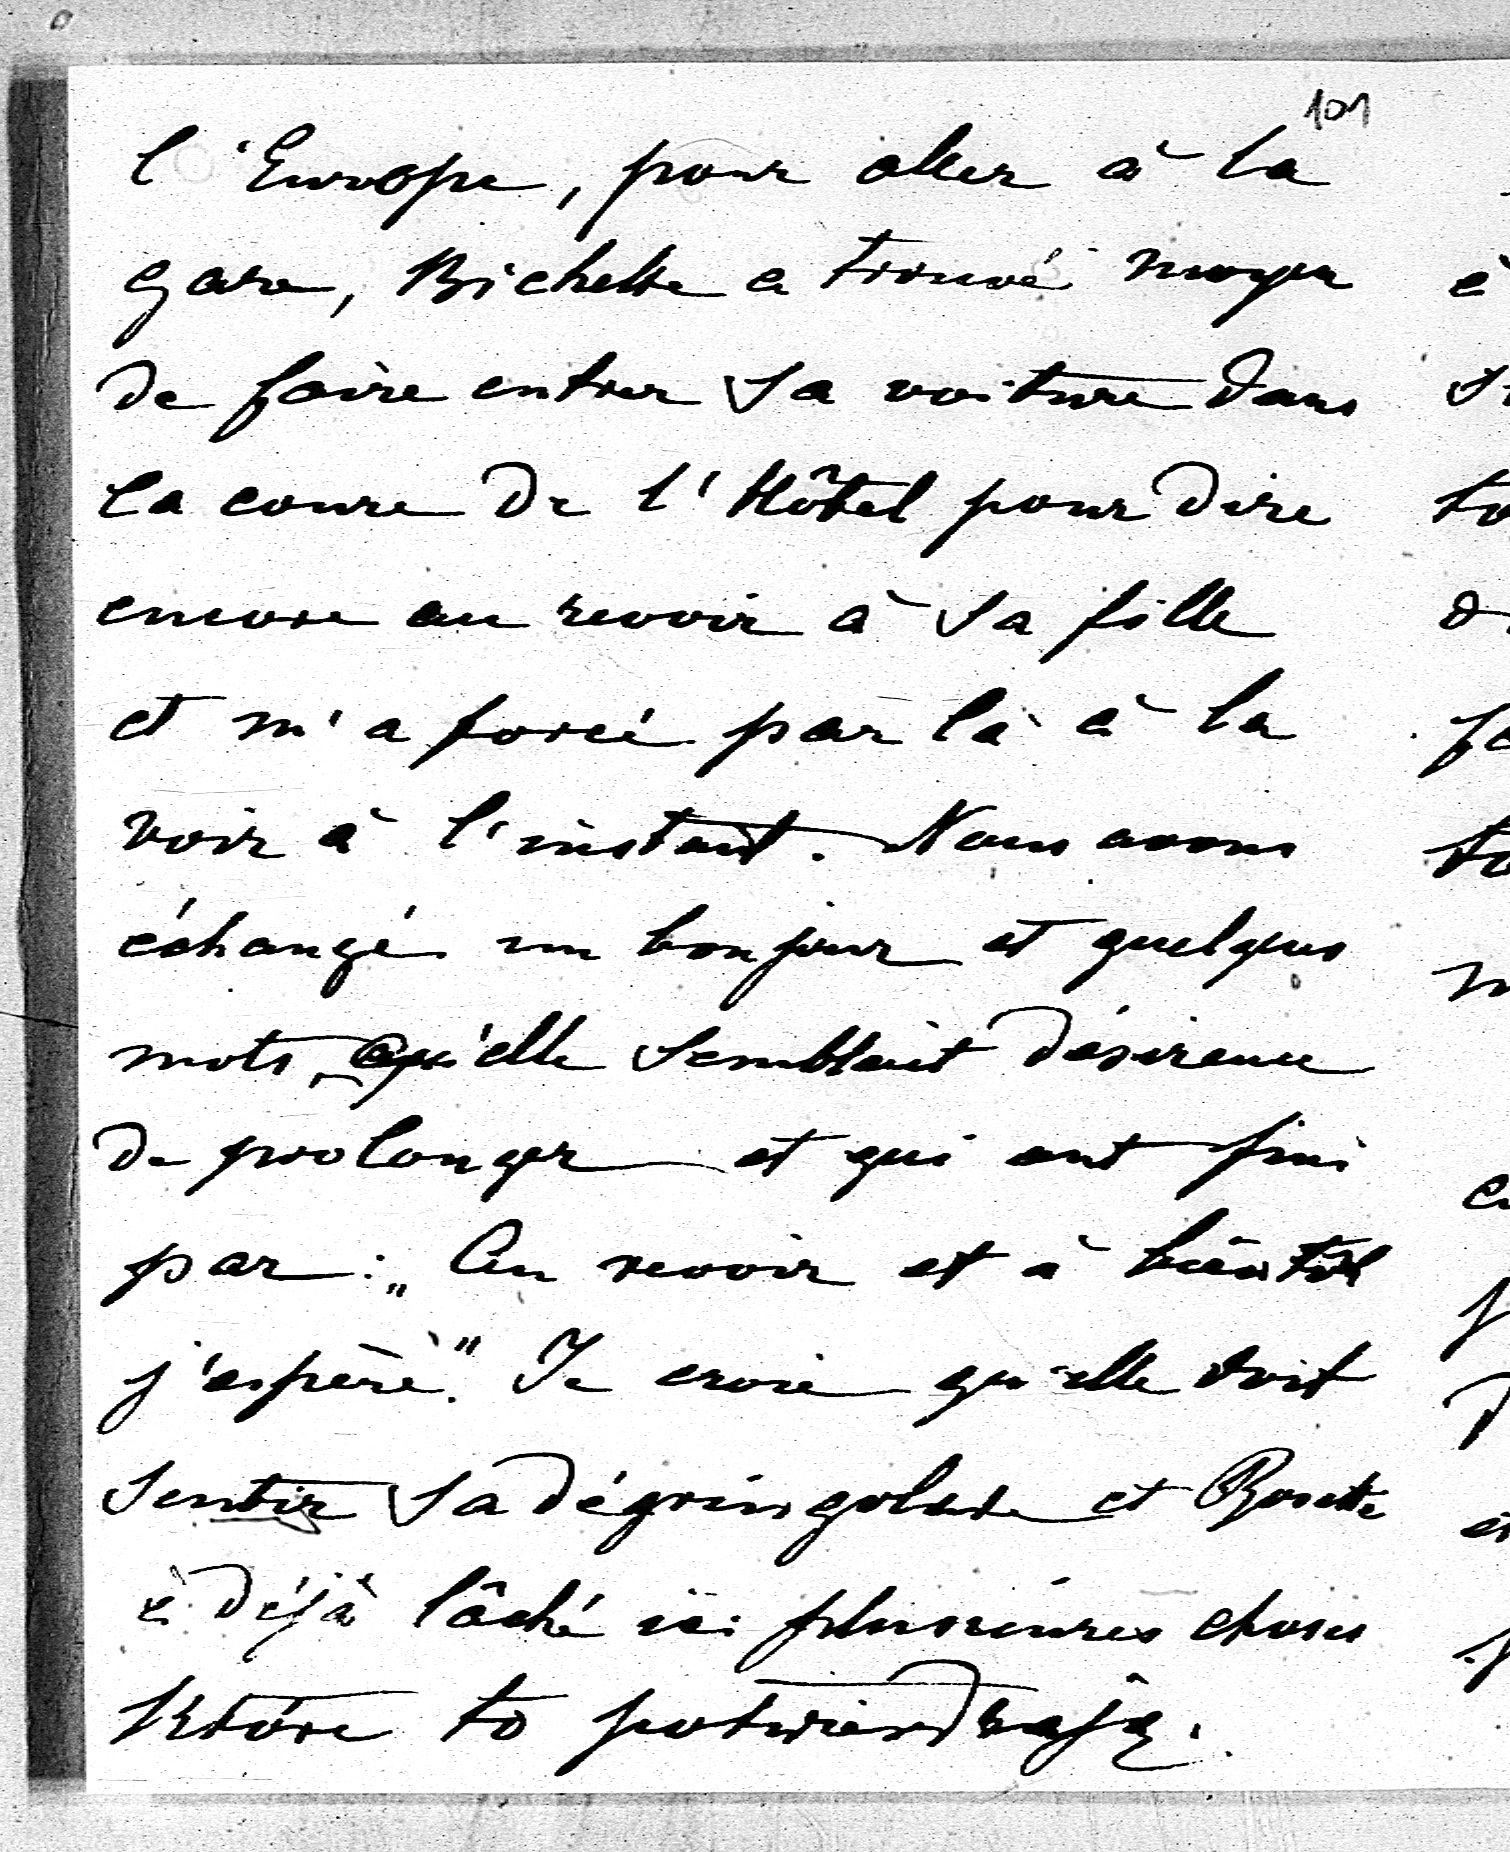 101
l'Europe, pour aller à la
gare, Bichette a trouvé moyen
de faire entrer sa voiture dans
la coure de l'Hôtel pour dire
encore au revoir à sa fille
et m'a forcé par là à la
voir à l'instant. Nous avons
échangé un bonjour et quelques
mots, qu'elle semblait désireuse
de prolonger et qui ont fini
par: „Au revoir et à bientôt
j'espère". Je crois qu'elle doit
sentir sa dégringolade et Rosette
a déjà lâché ici plusieures choses
które to potwierdzają.